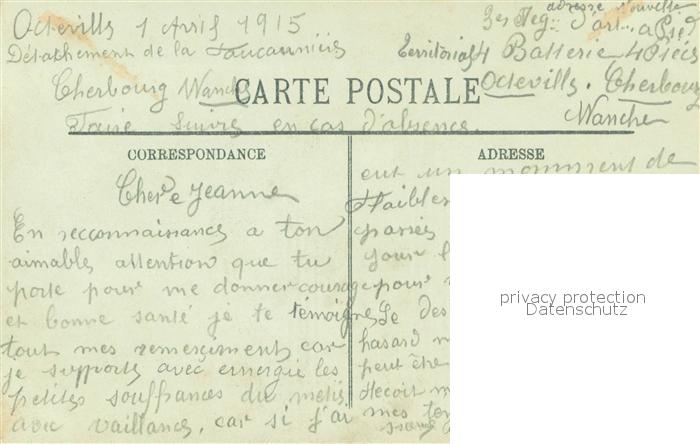 Octeville 1 Avril 1915
Détachement de la
Cherbourg Manche
Faire suivre en cas d'absence.
adresse nouvelle
3es Reg d'art. a Pied
Territorial 4 Batterie 4 Pièces
Octeville. Cherbourg
Manche
CARTE POSTALE
CORRESPONDANCE
Chere Jeanne
En reconnaissance a ton
aimables attention que tu
porte pour me donner courage
et bonne santé je te témoigne
tout mes remerciment car
je supporte avec energie les
petites souffrances du metis
avec vaillance, car si j'ai
ADRESSE
eut un momment de
Faibles
passées
jour
pour
Je des
hasard
peut être
Recoit
mes
privacy protection
Datenschutz